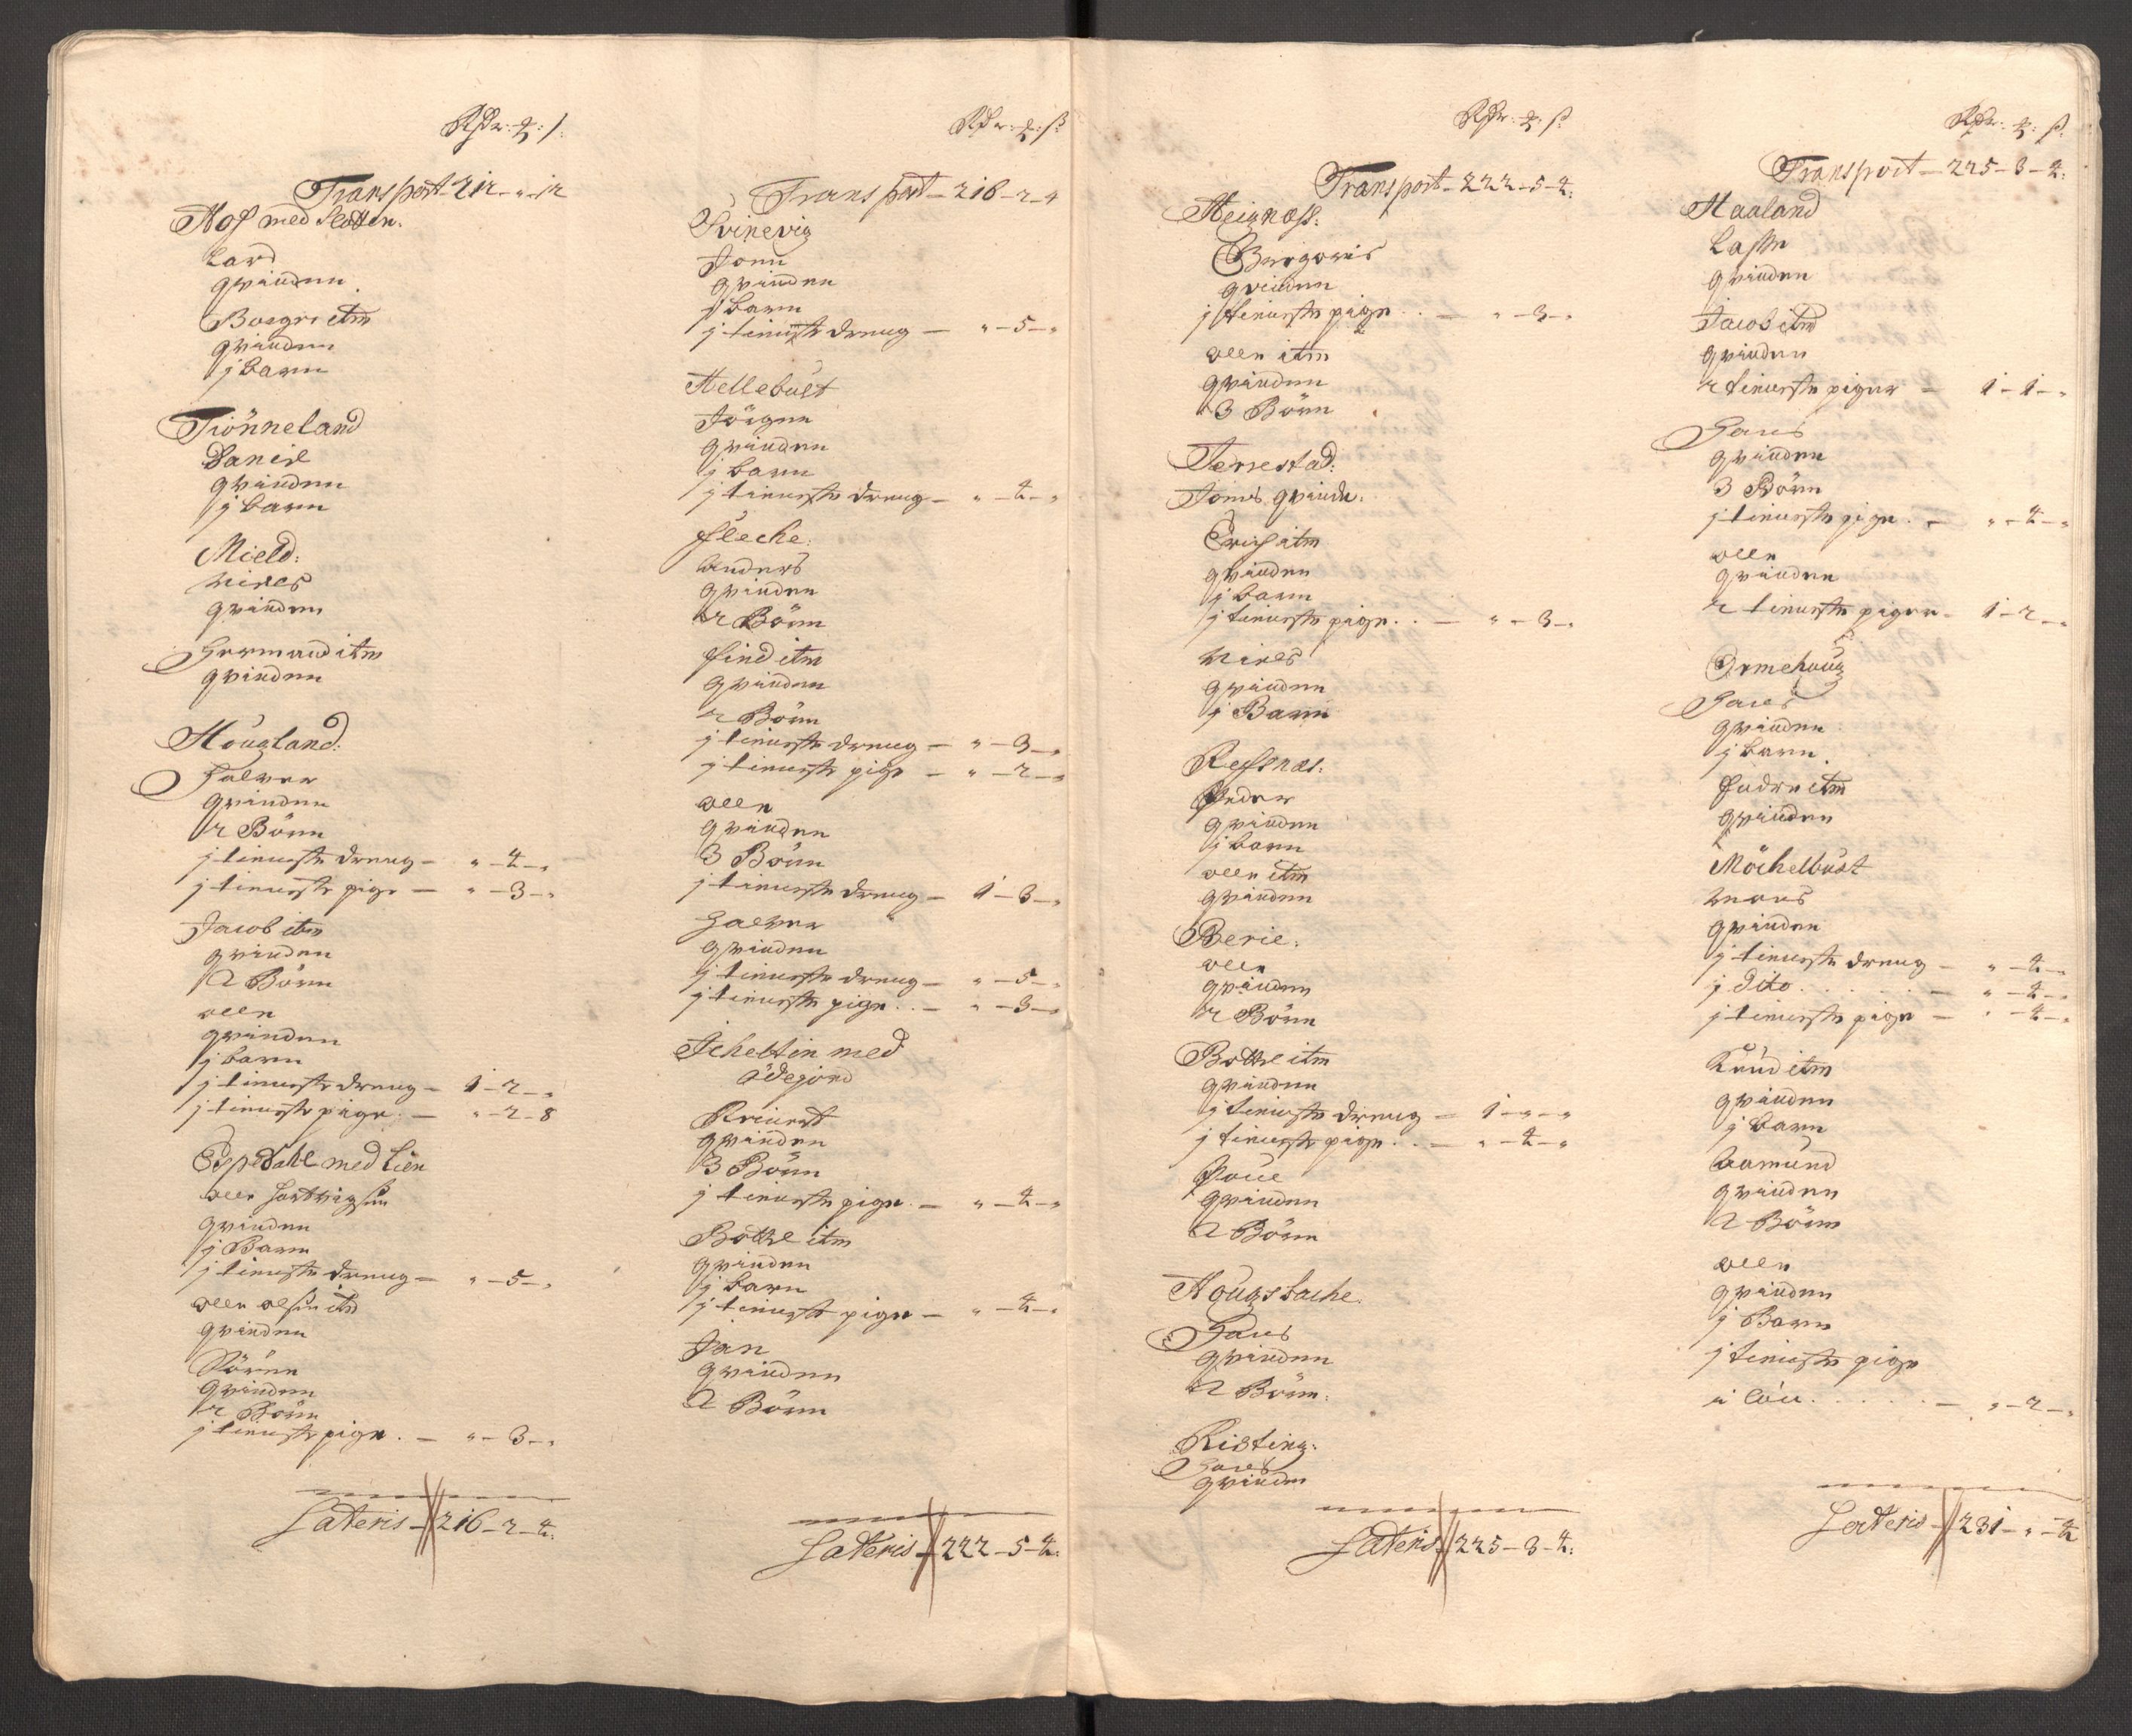 Rdr: ₰: ß:
Transport 212 - " - 12
Hof med Slotten.
Lars
qvinden
Borgre itm
qvinden
j barn
Tiönneland
Daniel
qvinden
j barn
Mield:
Niels
qvinden
Hermand itm
qvinden
Hougland:
Halver
qvinden
2 Börn
j tieneste dreng - " - 4 - "
j tieneste pige - " - 3 - "
Jacob itm
qvinden
2 Börn
olle
qvinden
j barn
j tieneste dreng - 1 - 2 - "
j tieneste pige. - " - 2 - 8
Espedahl med Lien
olle Hartvigsen
qvinden
j Barn
j tieneste dreng - " - 5 - "
olle olsen itm
qvinden
Sören
qvinden
2 Börn
j tieneste pige. - " - 3 - "
Lateris - 216 - 2 - 4:
Rdr: ₰: ß:
Transport - 216 - 2 - 4
Svinevig
Jonn
qvinden
j barn
j tieneste dreng - " - 5 - "
Hellebust
Jörgen
qvinden
j barn
j tieneste dreng - " - 4 - "
fleche:
anders
qvinden
2 Börn
find itm
qvinden
2 Börn
j tieneste dreng - " - 3 - "
j tieneste pige - " - 2 - "
olle
qvinden
3 Börn
j tieneste dreng - 1 - 3 - "
Halver
qvinden
j tieneste dreng - " - 5 - "
j tieneste pige . . - " - 3 - "
Icheltin med
ödegord
Reinert
qvinden
3 Börn
j tieneste pige. - " - 4 - "
Bottel itm
qvinden
j barn
j tieneste pige - " - 4 - "
Jan
qvinden
2 Börn
Lateris - 222 - 5 - 4:
Rdr: ₰: ß:
Transport - 222 - 5 - 4:
Heignæss:
Gregorius
qvinden
j tieneste pige . . - " - 3 - "
olle itm
qvinden
3 Börn
Ternestad:
Jones qvinde:
Erich itm
qvinden
j barn
j tieneste pige . . - " - 3 - "
Niels
qvinden
j Barn
Ressnæs:
Peder
qvinden
j barn
olle itm
qvinden
Berie:
olle
qvinden
2 Börn
Bottel itm
qvinden
j tieneste dreng - 1 - " - "
j tieneste pige . . - " - 4 - "
Poul
qvinden
2 Börn
Hougsbache
Hans
qvinden
2 Börn:
Risting:
Hans
qvinden
Lateris 225 - 3 - 4:
Rdr: ₰: ß:
Transport - 225 - 3 - 4:
Haaland
Lasse
qvinden
Jacob itm
qvinden
2 tieneste piger - 1 - 1 - "
Hans
qvinden
3 Börn
j tieneste pige. - " - 4 - "
olle
qvinden
2 tieneste piger - 1 - 2 - "
Ormehoug
Hans
qvinden
j barn.
Peder itm
qvinden
Möchelbust
mons
qvinden
j tieneste dreng - " - 4 - "
j dito . . . . . . - " - 4 - "
j tieneste pige - " - 4 - "
Knud itm
qvinden
j barn
aamund
qvinden
2 Börn
olle
qvinden
j Barn
j tieneste pige
u lön . . . . . . - " - 2 - "
Lateris - 231 - " - 4